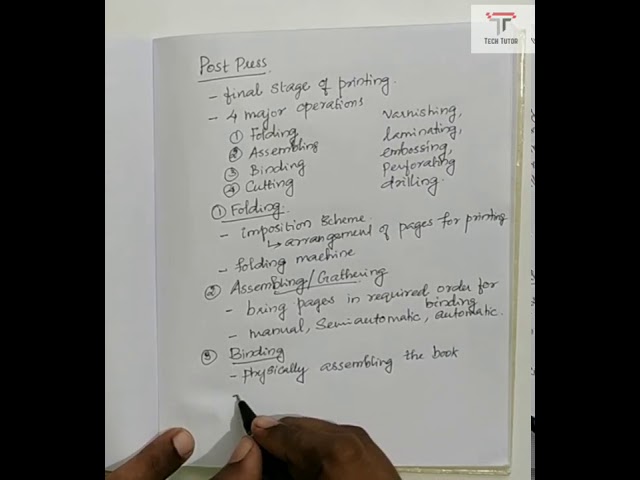 TECH TUTOR
Post Press
- final stage of printing.
- 4 major operations
① Folding
② Assembling
③ Binding
④ Cutting
Varnishing,
laminating,
embossing,
Perforating
drilling.
① Folding.
- imposition Scheme.
↳ arrangement of pages for printing
- folding machine
② Assembling/Gathering
- bring pages in required order for
binding
- manual, Semiautomatic, automatic.
③ Binding
- physically assembling the book
-